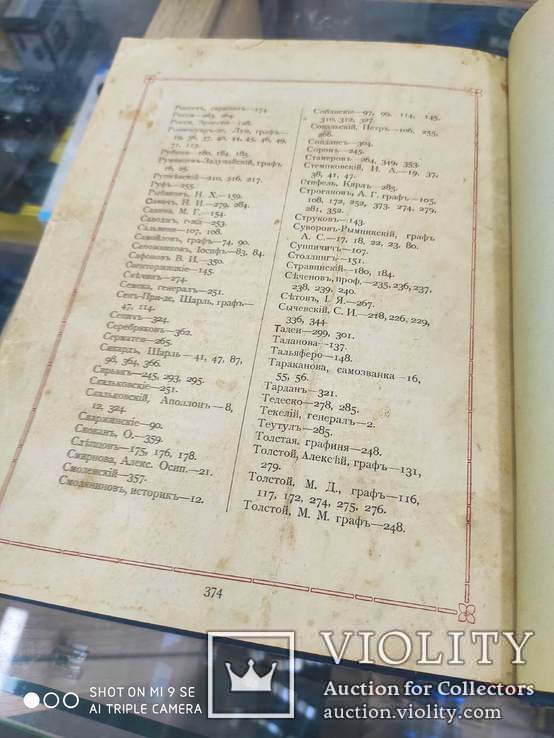 Россетъ, сержантъ—174.
Россіи—263, 264.
Росси, Эрнесто—128.
Рошешуаръ-де, Луи, графъ—
19, 36, 37, 40, 41, 45, 46, 49,
71, 115.
Рубини—180, 184, 185.
Румянцовъ-Задунайскій, графъ,
16, 25.
Руссѣ—255.
Рыбаковъ, Н. Х.—159.
Савичъ, Н. И.—279, 284.
Савина, М. Г.—154.
Сальвини—107, 108.
Самойловъ, графъ—74, 90.
Сапожниковъ, Іосифъ—83, 84.
Сафоновъ В. И.—350.
Сѣчинъ—274.
Сенека, генералъ—251.
Сенъ-При-де, Шарль, графъ—
47, 114.
Сеничъ—324.
Серебряковъ—362.
Сержатеъ—265.
Сикардъ, Шарль—41, 47, 87,
98, 364, 366.
Сирьякъ—245, 293, 295.
Скальковскіе—251.
Скальковскій, Аполлонъ—8,
12, 324.
Скаржинскіе—90.
Сковакъ, О.—359.
Слѣпцовъ—175, 176, 178.
Смирнова, Алекс. Осип.—21.
Смоленскій—357.
Смодяниновъ, историкъ—12.
Собанскіе—97, 99, 114, 145,
310, 312, 327.
Совальскій, Петръ—106, 255,
266.
Соронъ—245.
Стамеровъ—264, 349, 353.
Стемпковскій, И. А.—19, 37,
38, 41, 47.
Стифель, Карлъ—285.
Строгановъ, А. Г. графъ—105,
108, 172, 252, 373, 274, 279,
281, 352.
Струковъ—143.
Суворовъ-Рымникскій, графъ
А. С.—17, 18, 22, 23, 80.
Суппичичъ—107.
Столлингъ—151.
Стравинскій—180, 184.
Сѣченовъ, проф.—235, 236, 237,
238, 239, 240.
Сѣтовъ, І. Я.—267.
Сычевскій, С. И.—218, 226, 229,
336, 344.
Тадеи—299, 301.
Таланова—137.
Тальяферо—148.
Тараканова, самозванка—16,
55, 56.
Тарданъ—321.
Тедеско—278, 285.
Текелій, генералъ—2.
Теутулъ—285.
Толстая, графиня—248.
Толстой, Алексѣй, графъ—131,
279.
Толстой, М. Д., графъ—116,
117, 172, 274, 275, 276.
Толстой, М. М. графъ—248.
374
SHOT ON MI 9 SE
AI TRIPLE CAMERA
VIOLITY
Auction for Collectors
auction.violity.com